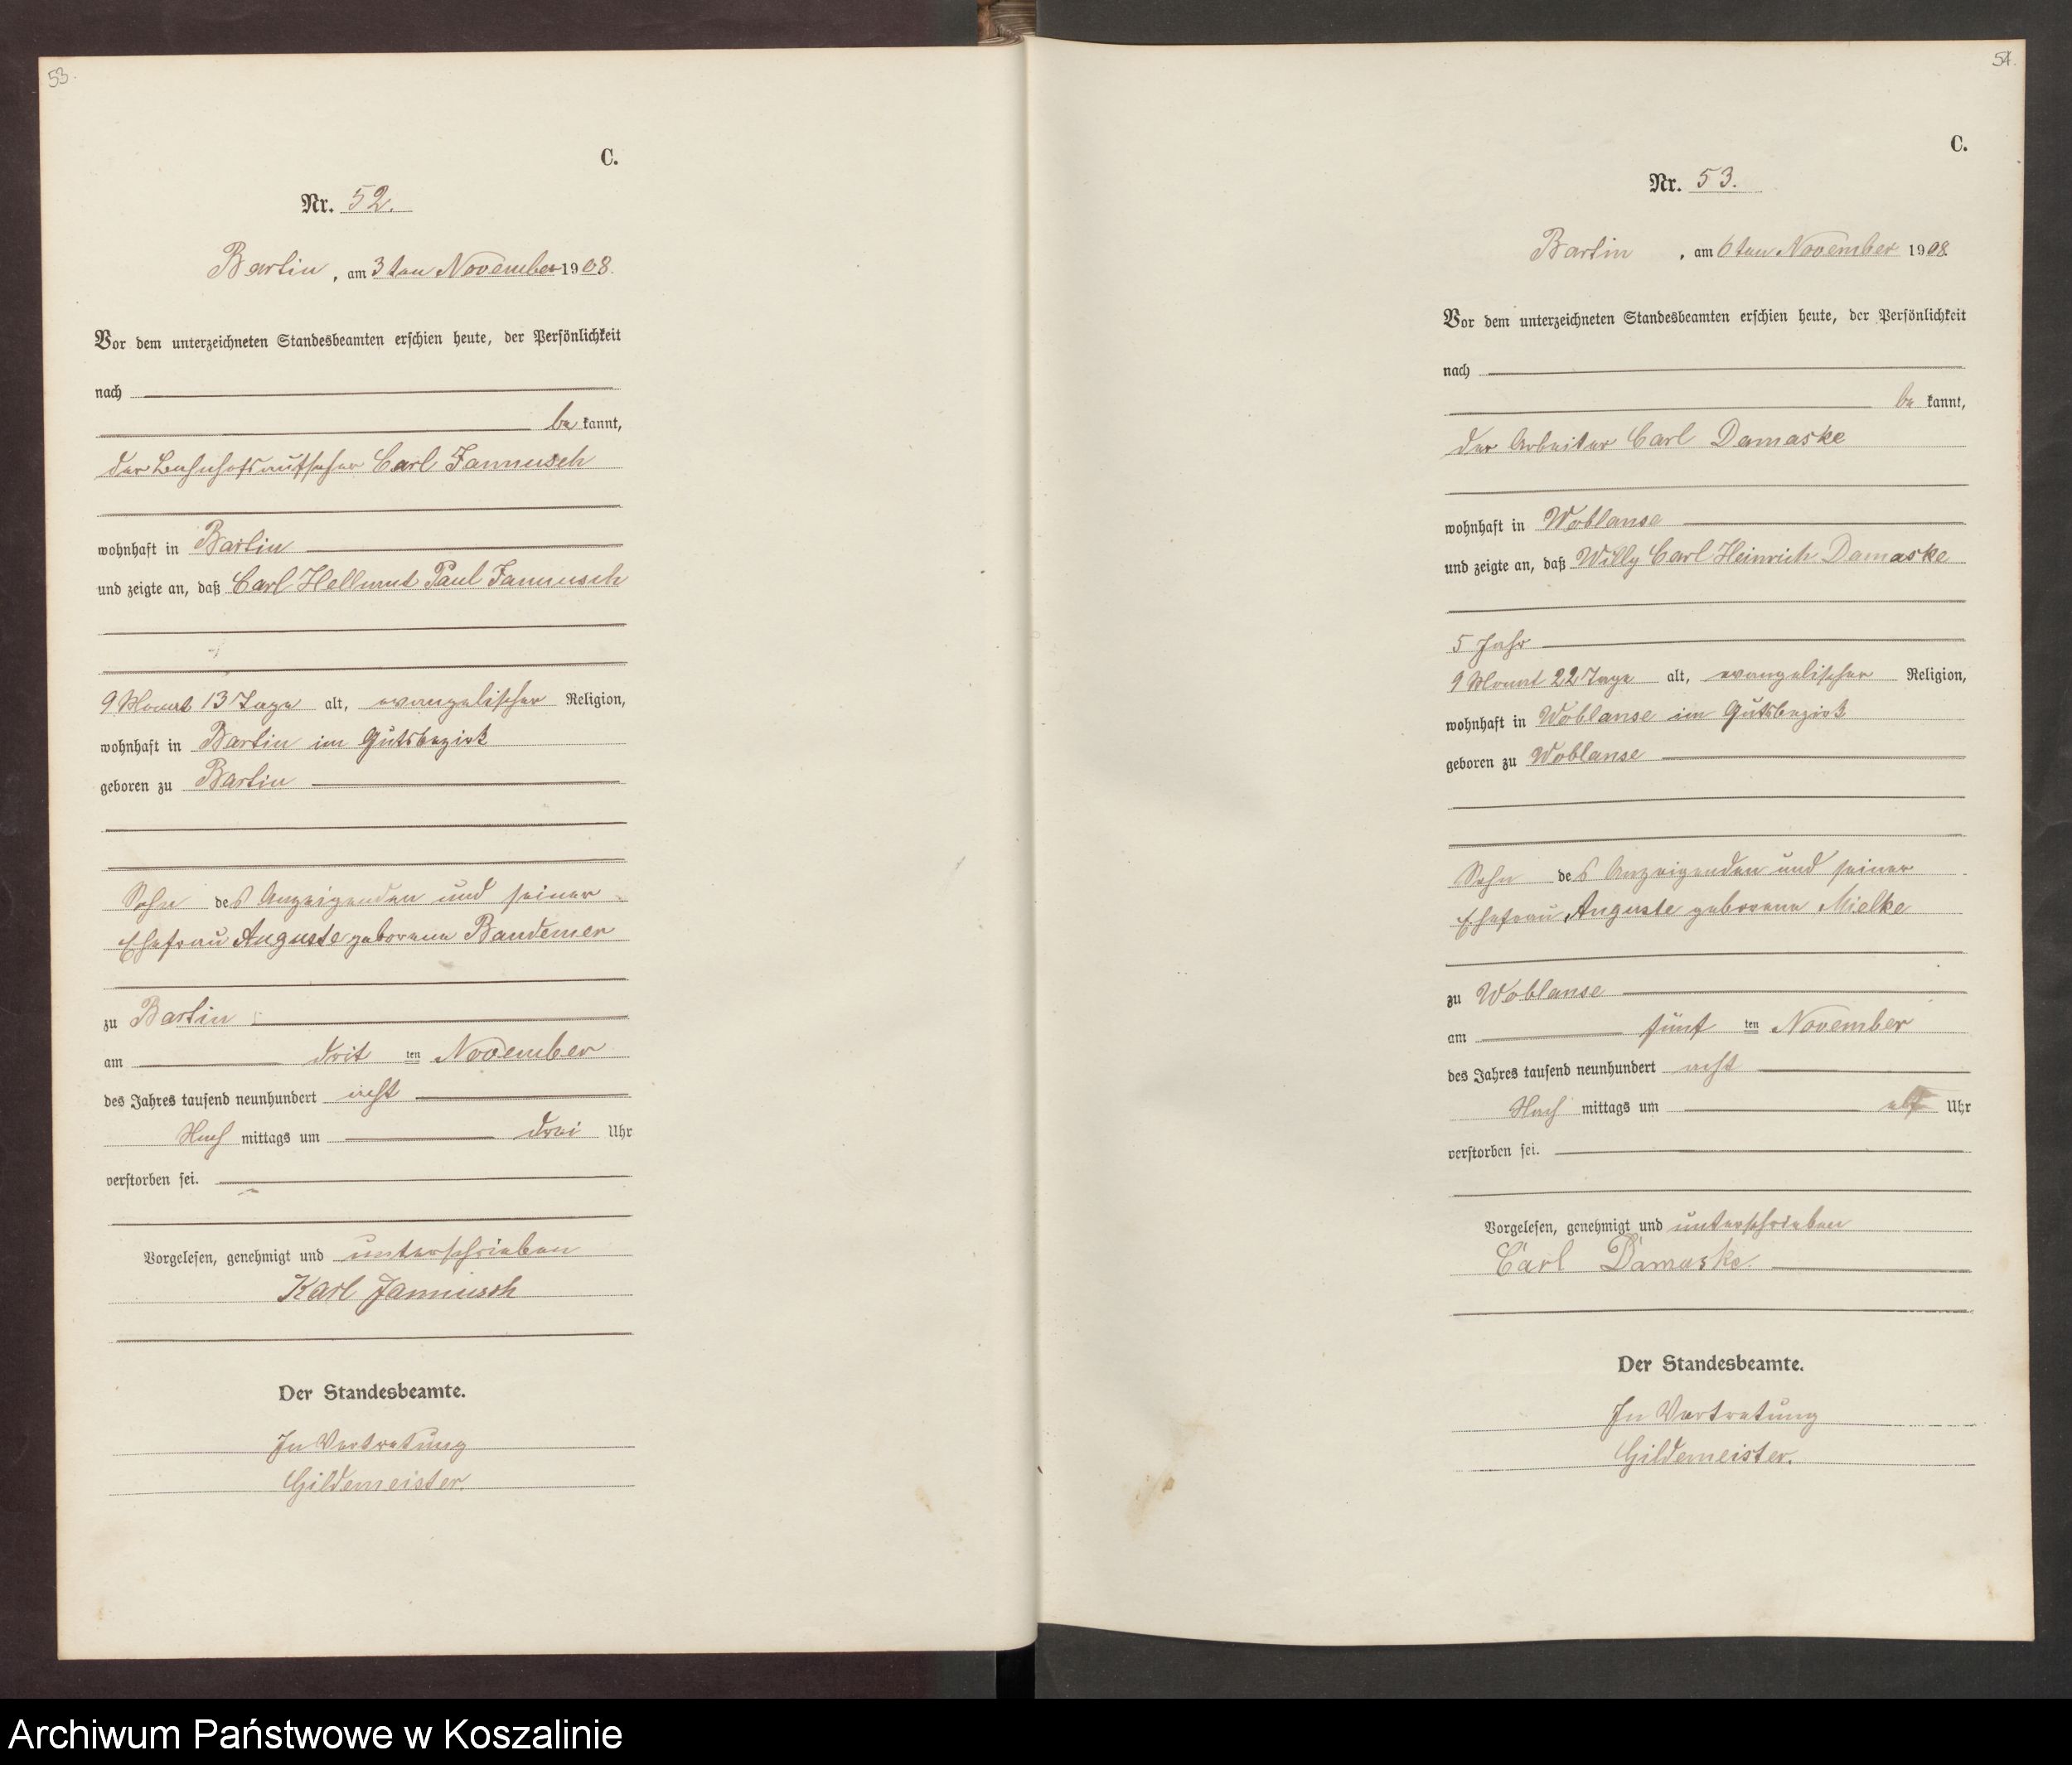 53.
C.
Nr. 52.
Bartin, am 3ten November 1908.
Vor dem unterzeichneten Standesbeamten erschien heute, der Persönlichkeit
nach
bekannt,
der Bahnhofsaufseher Carl Jannusch
wohnhaft in Bartin
und zeigte an, daß Carl Hellmut Paul Jannusch
9 Monat 13 Tage alt, evangelischer Religion,
wohnhaft in Bartin im Gutsbezirk
geboren zu Bartin
Sohn des Anzeigenden und seiner
Ehefrau Auguste geborene Bandemer
zu Bartin
am drit ten November
des Jahres tausend neunhundert acht
Nach mittags um drei Uhr
verstorben sei.
Vorgelesen, genehmigt und unterschrieben
Karl Jannusch
Der Standesbeamte.
In Vertretung
Gildemeister.
54.
C.
Nr. 53.
Bartin, am 6ten November 1908.
Vor dem unterzeichneten Standesbeamten erschien heute, der Persönlichkeit
nach
bekannt,
der Arbeiter Carl Damaske
wohnhaft in Woblanse
und zeigte an, daß Willy Carl Heinrich Damaske
5 Jahr
9 Monat 22 Tage alt, evangelischer Religion,
wohnhaft in Woblanse im Gutsbezirk
geboren zu Woblanse
Sohn des Anzeigenden und seiner
Ehefrau Auguste geborene Mielke
zu Woblanse
am fünf ten November
des Jahres tausend neunhundert acht
Nach mittags um elf Uhr
verstorben sei.
Vorgelesen, genehmigt und unterschrieben
Carl Damaske.
Der Standesbeamte.
In Vertretung
Gildemeister.
Archiwum Państwowe w Koszalinie